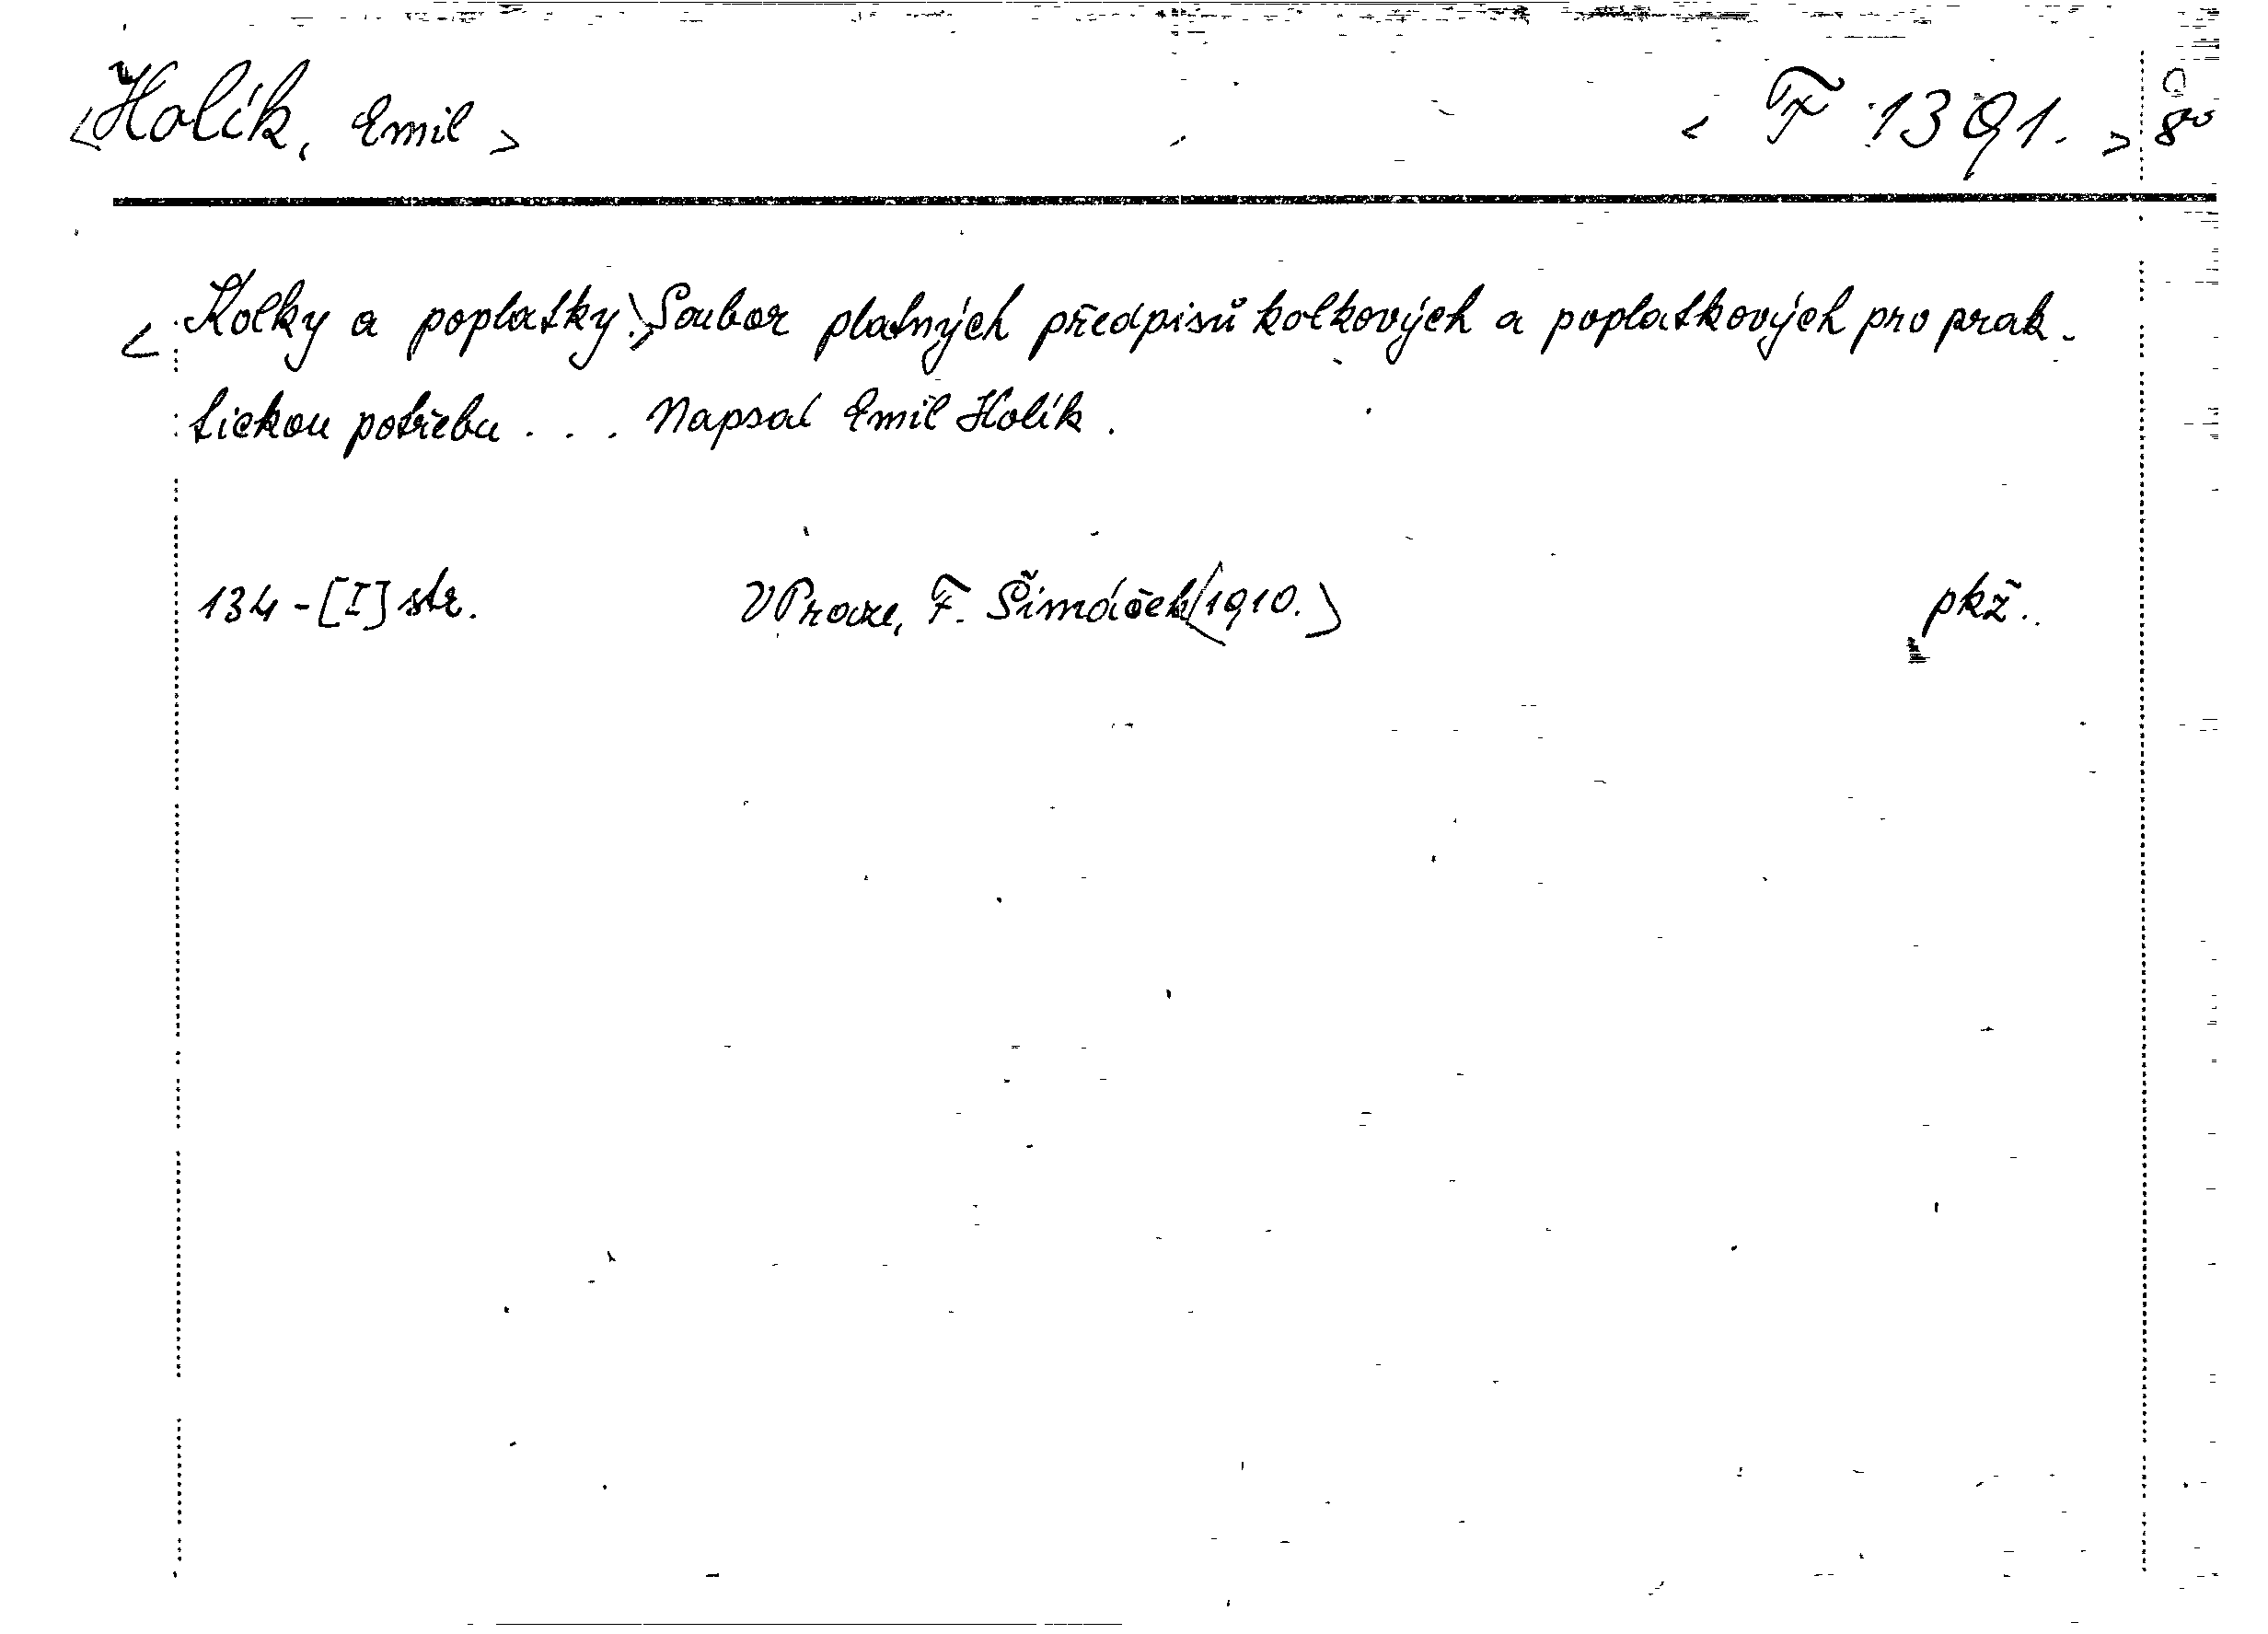 <Holík, Emil> <F 1391.> 8°
<Kolky a poplatky.> Soubor platných předpisů kolkových a poplatkových pro prak-
tickou potřebu . . . Napsal Emil Holík.
134-[I] str. V Praze, F. Šimáček <1910.> pkž..